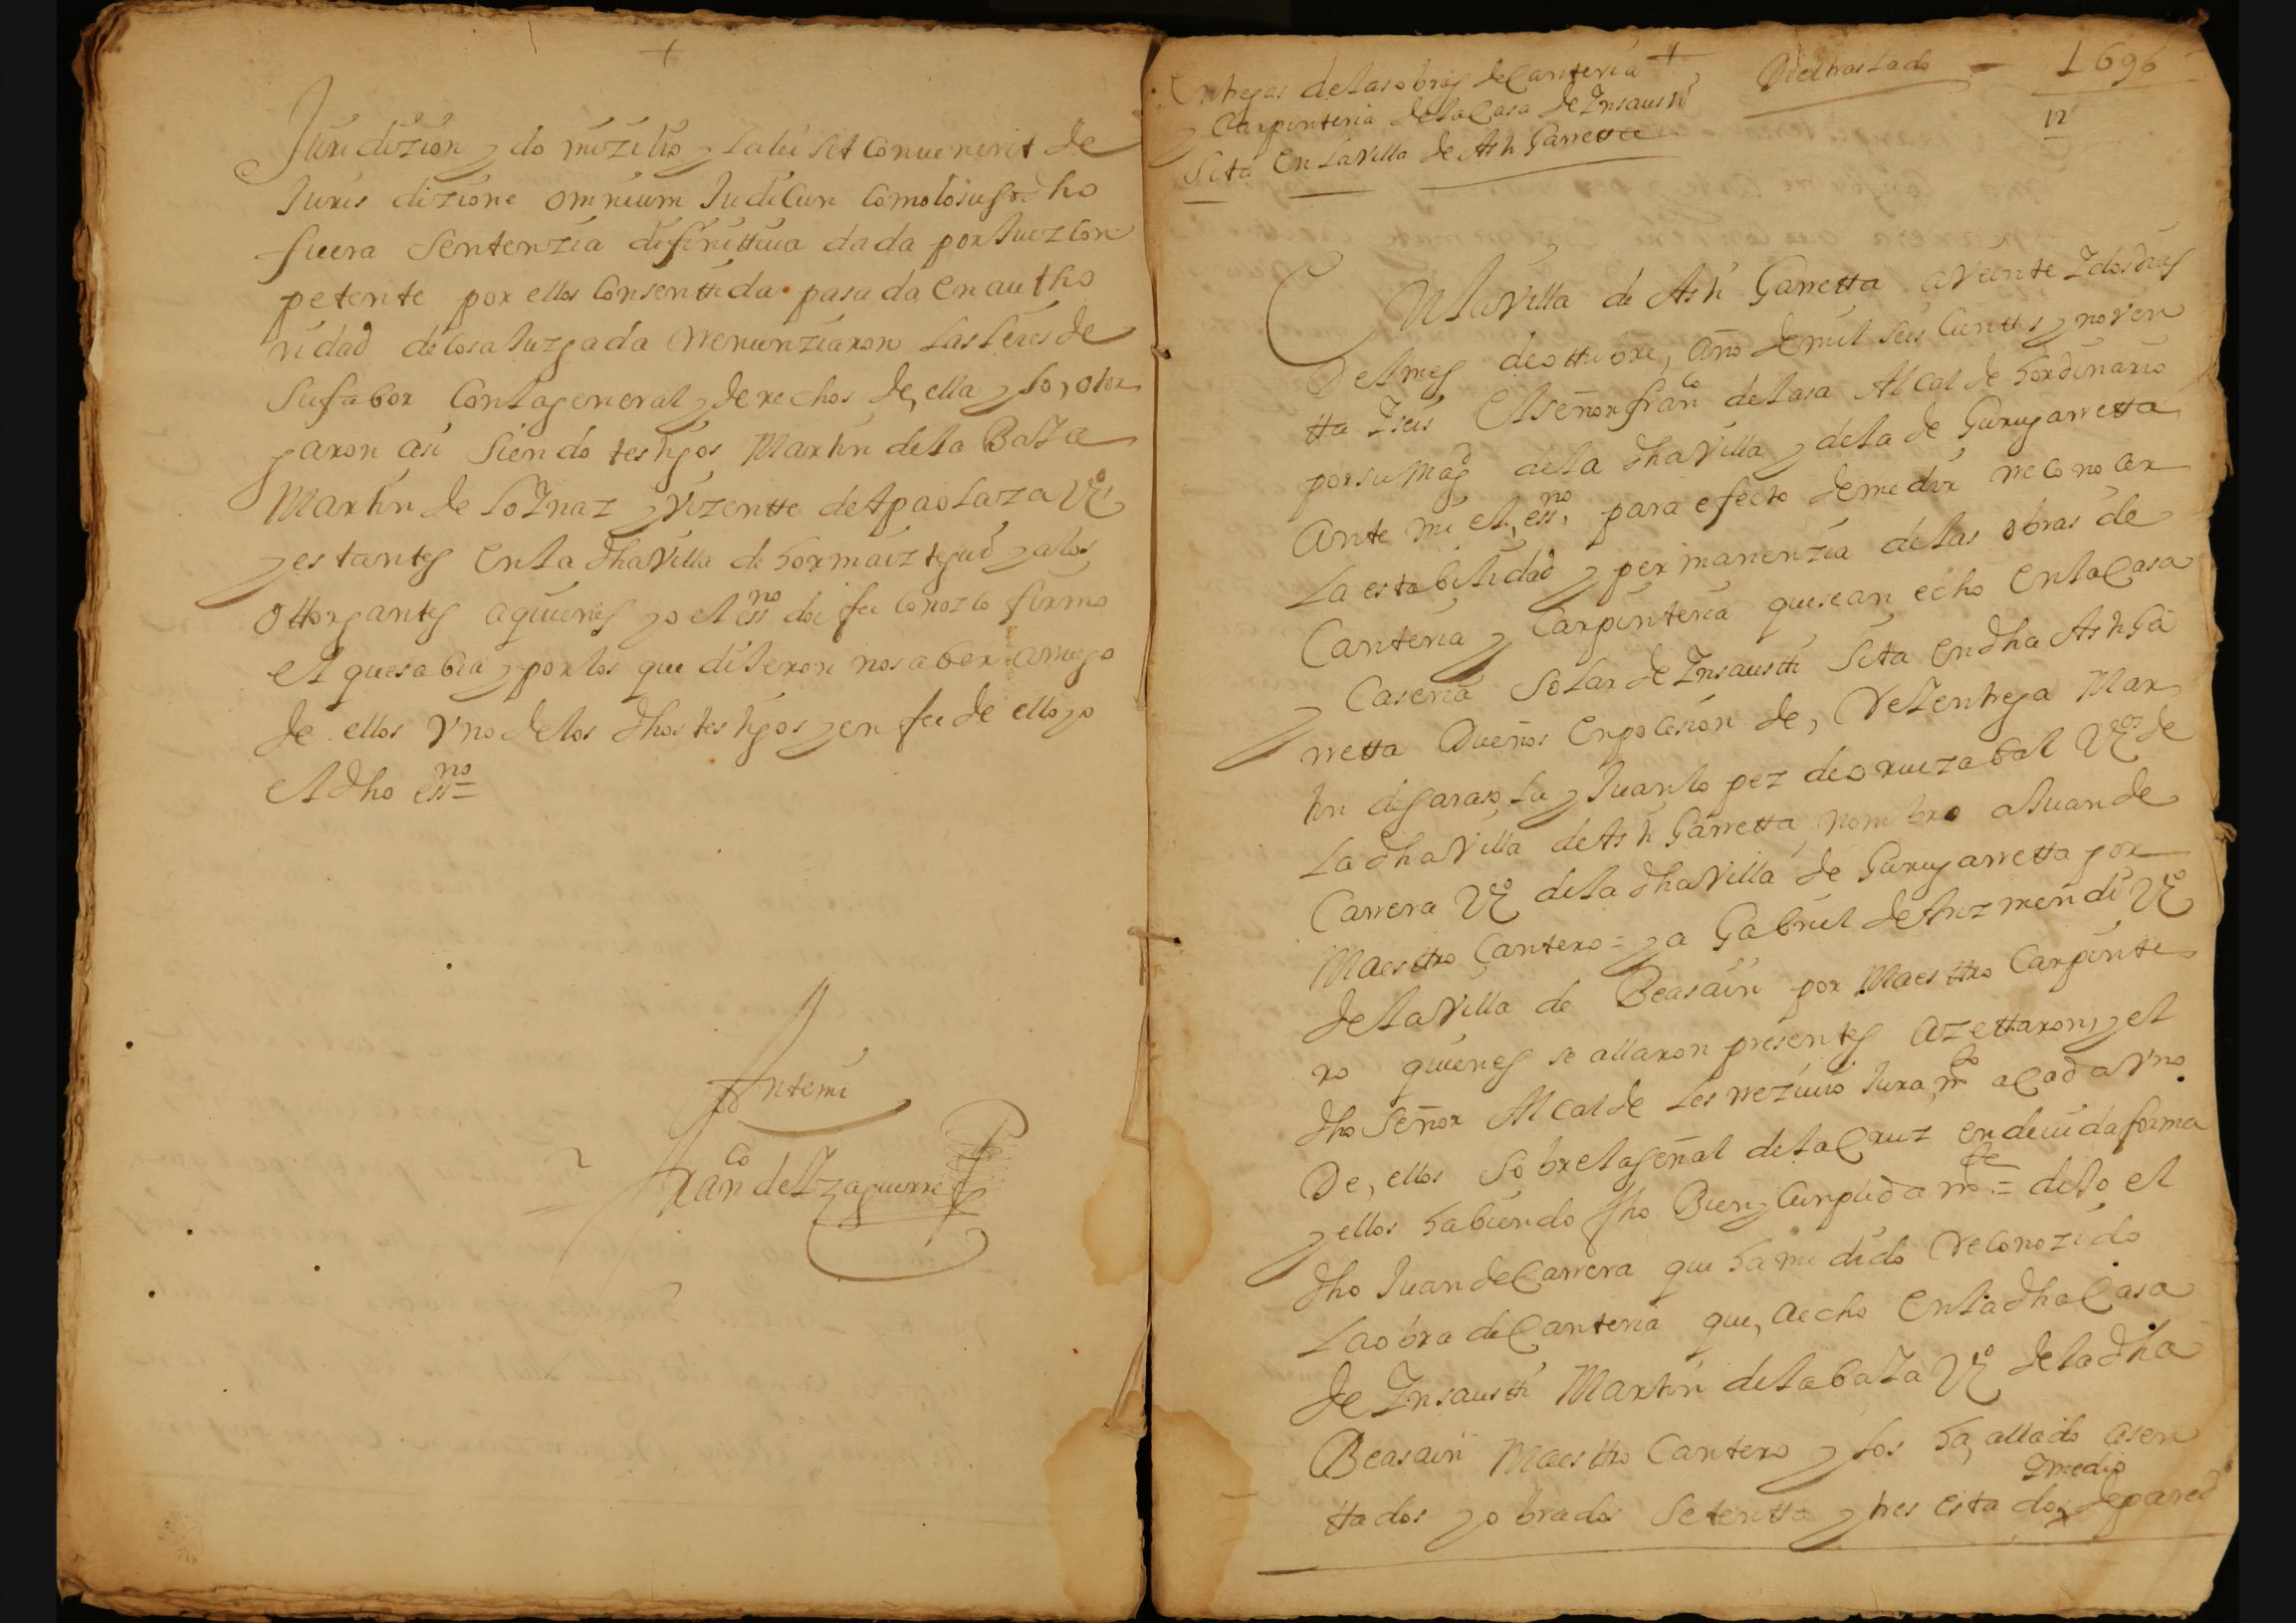 +
Juridizion y do mizilio y la lei sit convenerit de
Juris dizione omnium Judicun como lo sus dho
fuera sentenzia difinittiva dada por Juez con
petente por ellos consenttida pasada en autho
ridad de cosa Juzgada rrenunziaron las leies de
su fabor con la general y derechos de, ella y lo, otor
garon asi siendo testigos Martin de la Baza
Martin de loInaz y Vizentte de Apaolaza Vºs
y estantes en la dha Villa de hormaiztegui d y a los
ottorgantes a quienes yo el essno doi fee conozco firmo
el que sabia y por los que dijeron no saber a rruego
de ellos Vno de los dhos testigos y en fee de ello yo
el dho essno =
Antemi
Franco de Izaguirre
Entregas de las obras de Canteria +
y Carpinteria de la Casa de Insausti
Sita en la Villa de Astigarreta
Di el traslado - 1696
12
En la Villa de Astigarretta a veinte I dos dias
Del mes de ottubre, año de mil seis cienttos y noven
tta I seis El señor franco de lasa Alcalde hordinario
por su Magd de la dha Villa y de la de Gurugarretta
Ante mi el, essno, para efecto de medir rreconozer
La estabilidad y permanenzia de las obras de
Canteria y Carpinteria que se an echo en la Casa
y Caseria Solar de Insausti Sita en dha Astiga
rretta Dueños en posesion de, Vel entrega Mar
tin de garaso, la y Juan lopez de oruezabal Vºs de
La dha Villa de Astigarretta, nombro a Juan de
Carrera Vº de la dha Villa de Gurugarretta por
Maesttro Cantero = y a Gabriel de Arizmendi Vº
de la Villa de Beasain por Maesttro Carpinte
ro quienes se allaron presentes azettaron, y el
dho Señor Alcalde les rrezivio Juramto a cada Vno
De, ellos sobre la señal de la Cruz en devida forma
y ellos habiendo fho Bien y Cunplidamte = dijo el
dho Juan de Carrera que ha medido Reconozido
La obra de Canteria que, a echo en la dha Casa
de Insausti Martin de la baza Vº de la dha
Beasain Maesttro Cantero y los ha, allado asen
ttados y obrados Setentta y tres estados I medio de pared